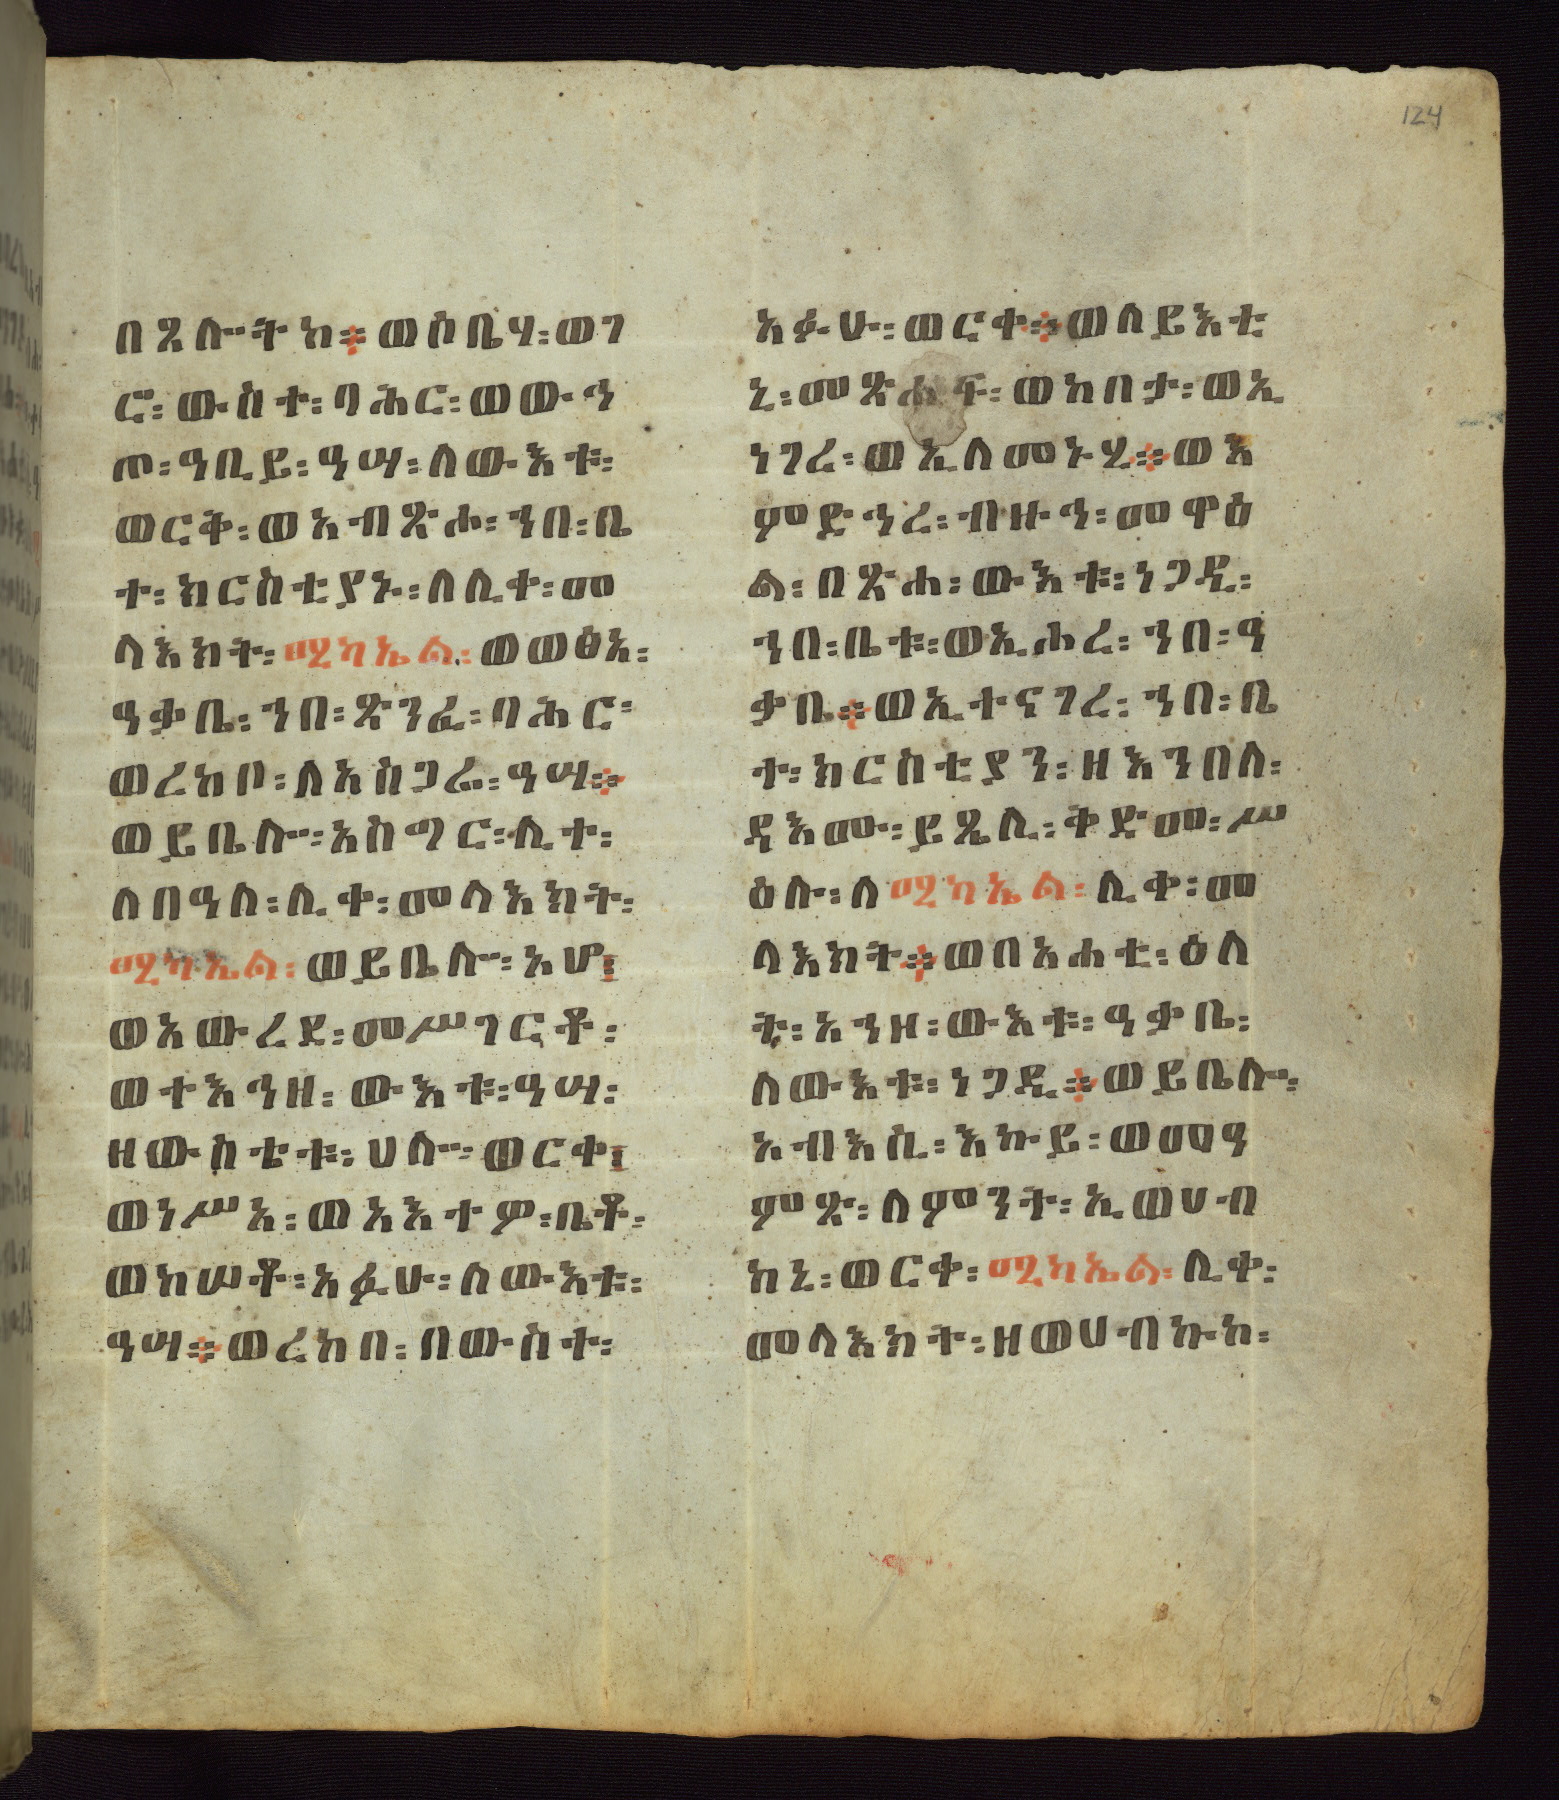 124
በጺሎትከ። ወሶቤሃ፡ ወገ
ሮ፡ ውስተ፡ ባሕር፡ ወውኅ
ጦ፡ ዓቢይ፡ ዓሣ፡ ለውእቱ፡
ወርቅ፡ ወአብጽሖ፡ ኀበ፡ ቤ
ተ፡ ክርስቲያኑ፡ ለሊቀ፡ መ
ላእክት፡ ሚካኤል፡ ወወፅአ፡
ዓቃቤ፡ ኀበ፡ ጽንፈ፡ ባሕር፡
ወረከቦ፡ ለአስጋሬ፡ ዓሣ።
ወይቤሎ፡ አስግር፡ ሊተ፡
ለበዓለ፡ ሊቀ፡ መላእክት፡
ሚካኤል፡ ወይቤሎ፡ አሆ፤
ወአውረደ፡ መሥገርቶ፡
ወተእኅዘ፡ ውእቱ፡ ዓሣ፡
ዘውስቴቱ፡ ሀሎ፡ ወርቀ፤
ወነሥአ፡ ወአእተዎ፡ ቤቶ፡
ወከሠቶ፡ አፉሁ፡ ለውእቱ፡
ዓሣ። ወረከበ፡ በውስተ፡
አፉሁ፡ ወርቀ። ወለይእቲ
ኒ፡ መጽሐፍ፡ ወከበታ፡ ወኢ
ነገረ፡ ወኢለመኑሂ። ወእ
ምድኅረ፡ ብዙኅ፡ መዋዕ
ል፡ በጽሐ፡ ውእቱ፡ ነጋዲ፡
ኀበ፡ ቤቱ፡ ወኢሖረ፡ ኀበ፡ ዓ
ቃቤ። ወኢተናገረ፡ ኀበ፡ ቤ
ተ፡ ክርስቲያን፡ ዘእንበለ፡
ዳእሙ፡ ይጼሊ፡ ቅድመ፡ ሥ
ዕሉ፡ ለሚካኤል፡ ሊቀ፡ መ
ላእክት። ወበአሐቲ፡ ዕለ
ት፡ አኀዘ፡ ውእቱ፡ ዓቃቤ፡
ለውእቱ፡ ነጋዲ። ወይቤሎ፡
አብእሲ፡ እኩይ፡ ወመዓ
ምጽ፡ ለምንት፡ ኢወሀብ
ከኒ፡ ወርቀ፡ ሚካኤል፡ ሊቀ፡
መላእክት፡ ዘወሀብኩከ፡